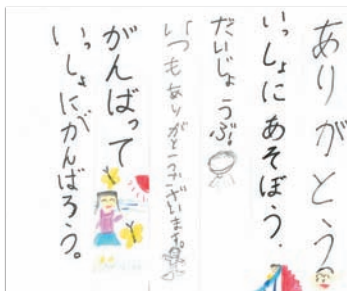 ありがとう
いっしょにあそぼう.
だいじょうぶ!
いつもありがとうございます。
がんばって
いっしょにがんばろう。